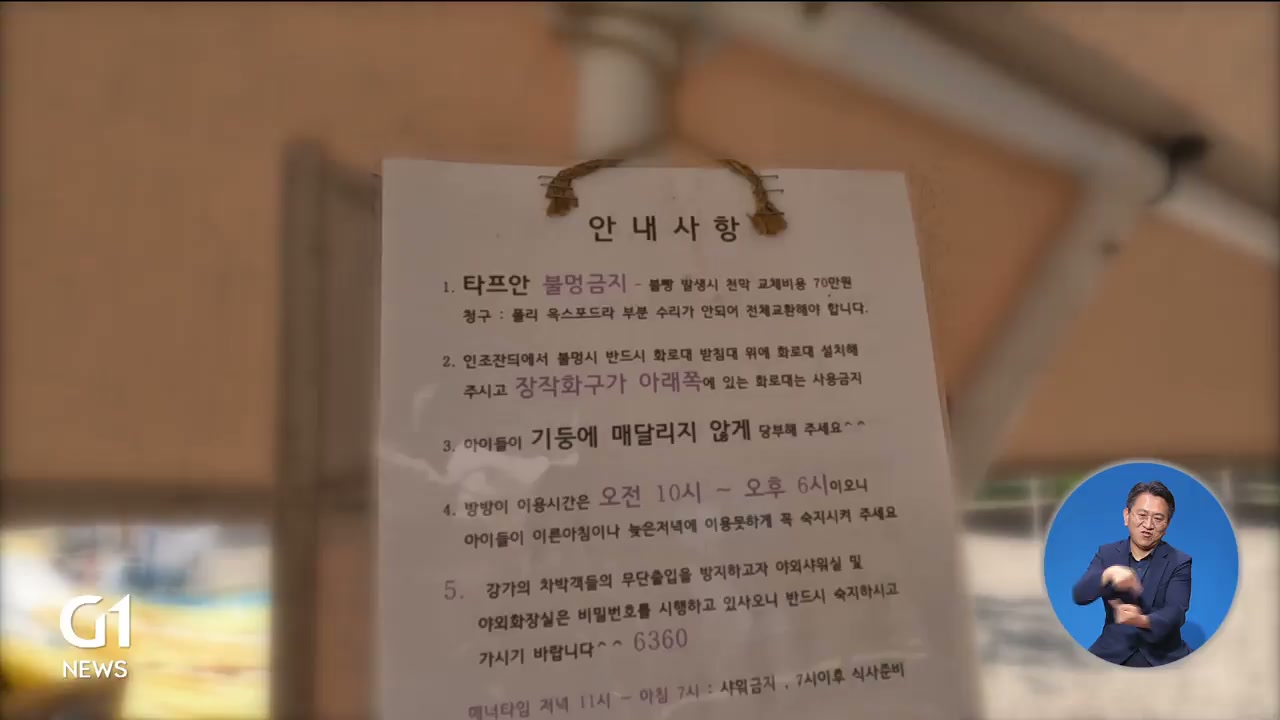 안내사항
1. 타프안 불멍금지 - 불빵 발생시 천막 교체비용 70만원
청구 : 폴리 옥스포드라 부분 수리가 안되어 전체교환해야 합니다.
2. 인조잔듸에서 불멍시 반드시 화로대 받침대 위에 화로대 설치해
주시고 장작화구가 아래쪽에 있는 화로대는 사용금지
3. 아이들이 기둥에 매달리지 않게 당부해 주세요^^
4. 방방이 이용시간은 오전 10시 ~ 오후 6시이오니
아이들이 이른아침이나 늦은저녁에 이용못하게 꼭 숙지시켜 주세요
5. 강가의 차박객들의 무단출입을 방지하고자 야외샤워실 및
야외화장실은 비밀번호를 시행하고 있사오니 반드시 숙지하시고
가시기 바랍니다^^ 6360
매너타임 저녁 11시 ~ 아침 7시 : 샤워금지 , 7시이후 식사준비
G1
NEWS